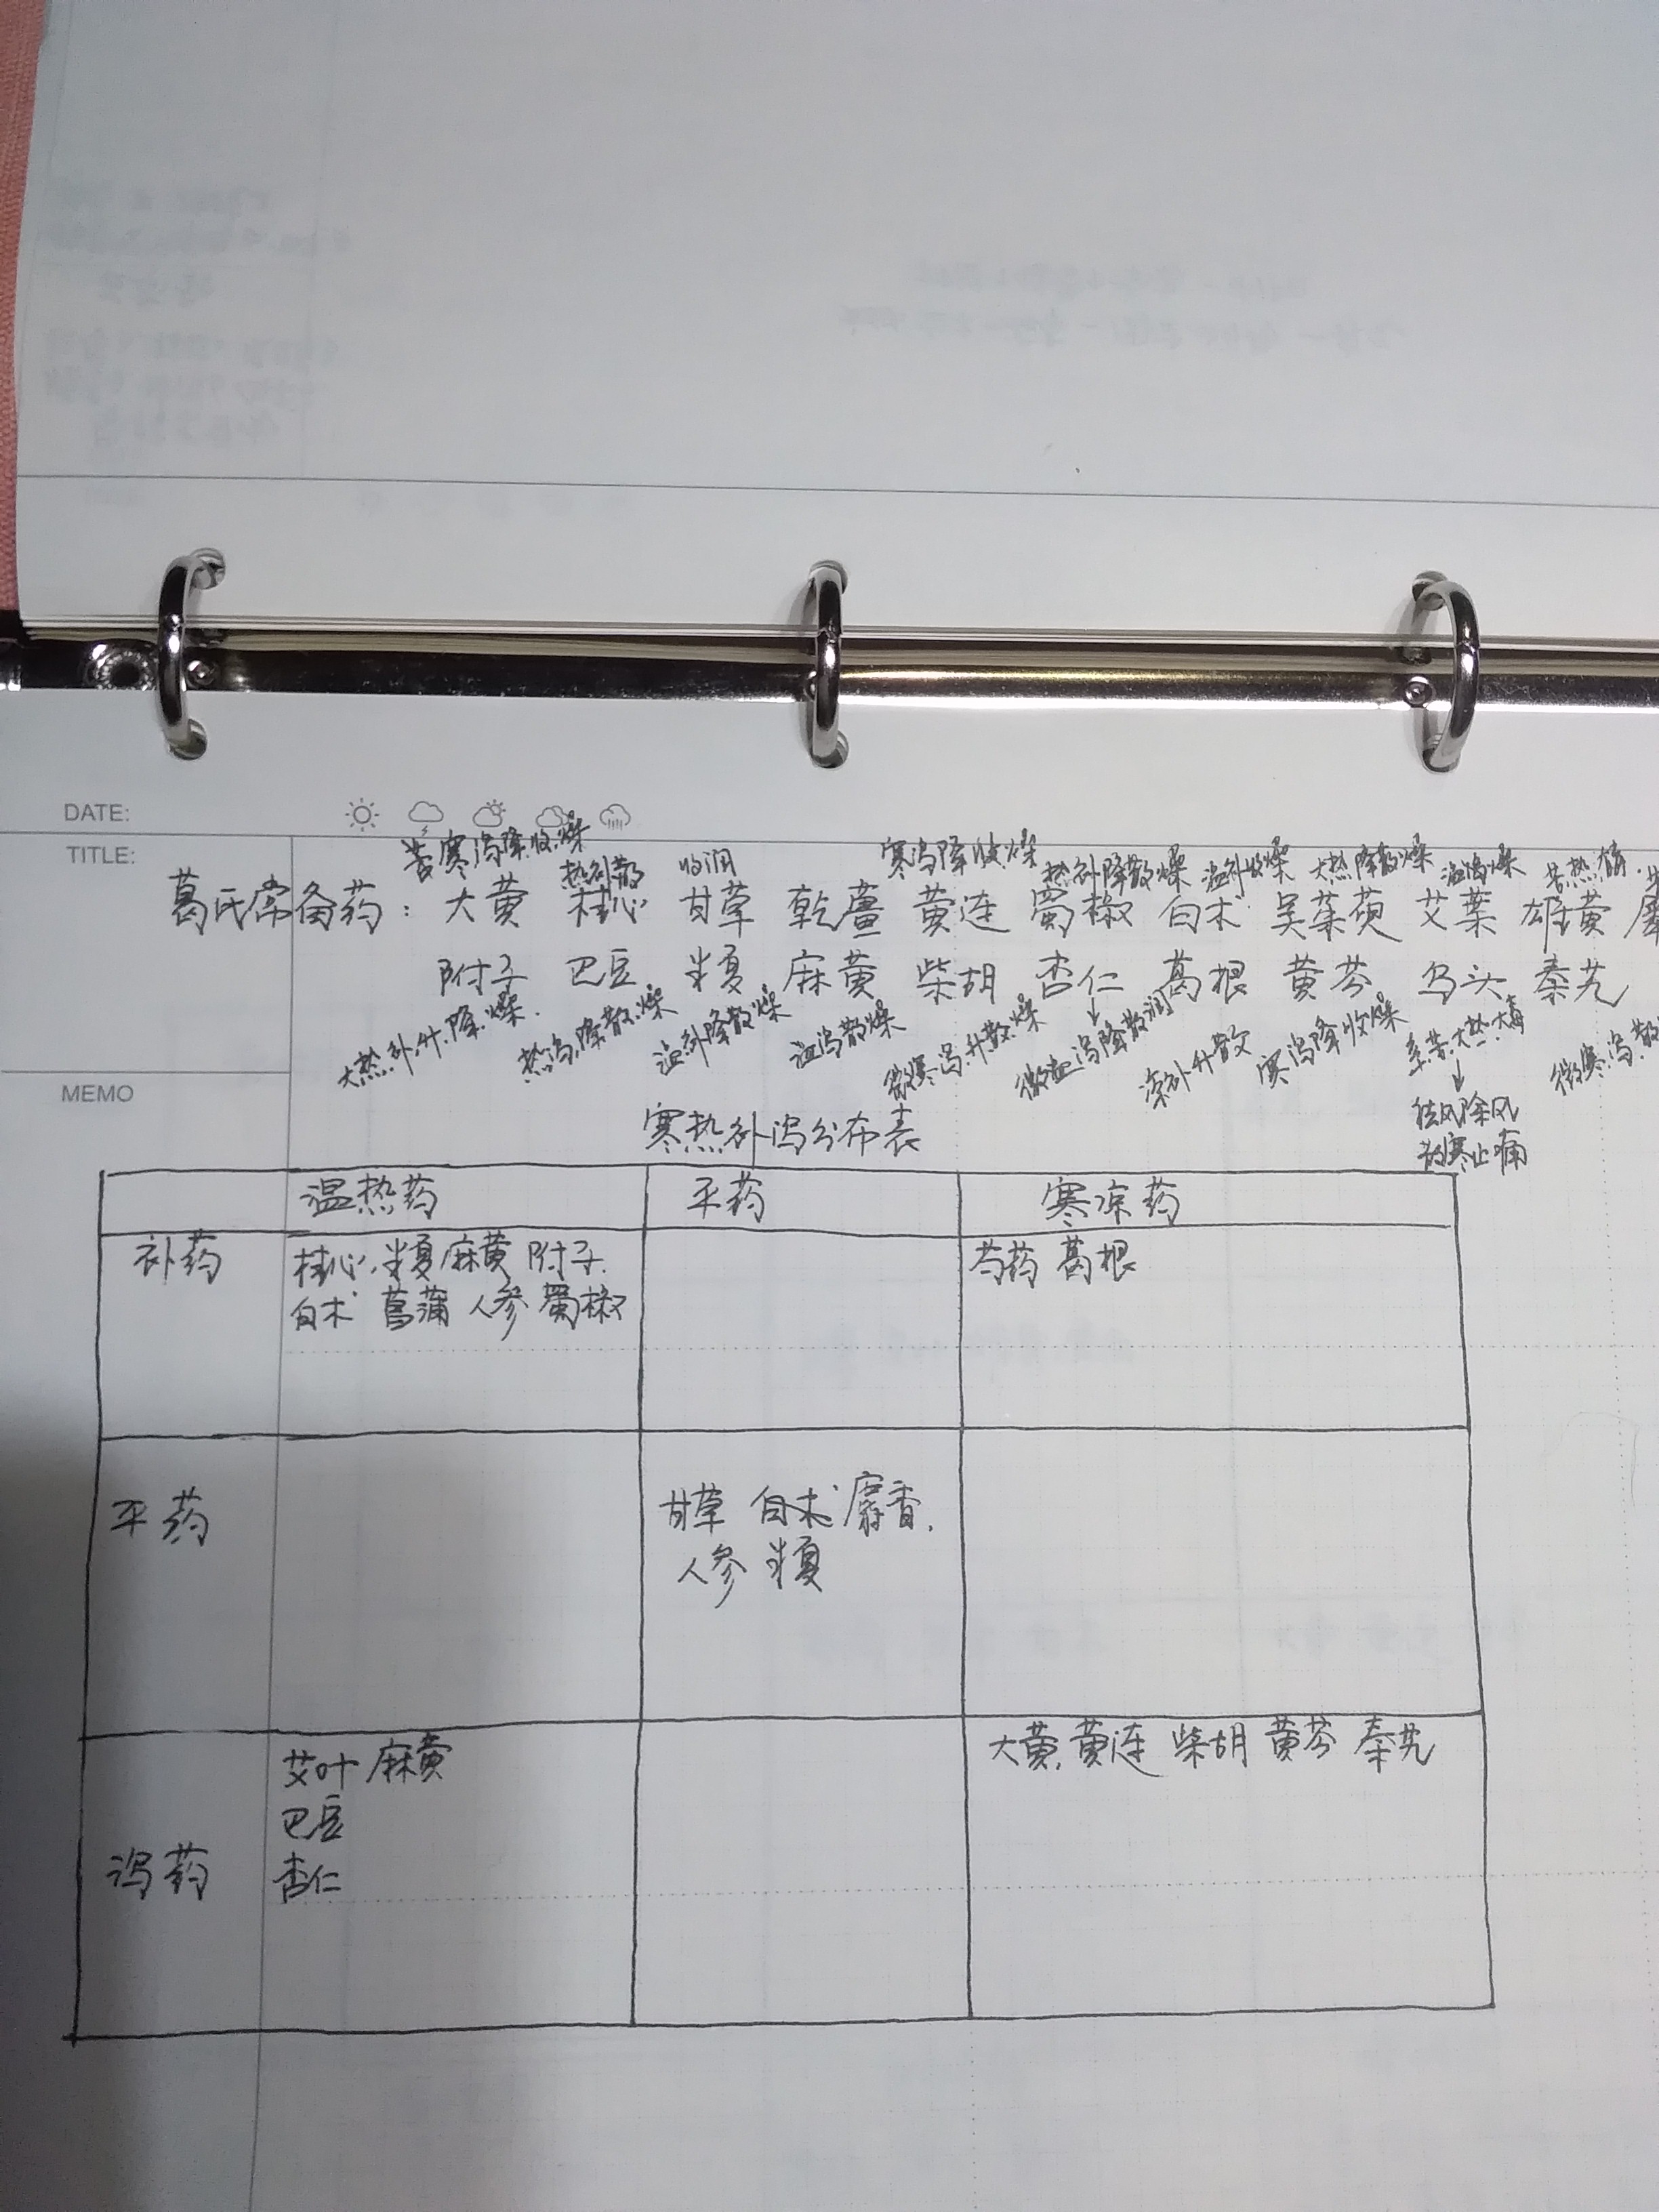 DATE:
TITLE:
苦寒泻.降.收.燥
热补散
收润
寒泻降收.燥
热补降散燥
温补收燥
大热降散燥
温泻燥
苦热
葛氏常备药：大黄 桂心 甘草 乾薑 黄连 蜀椒 白术 吴茱萸 艾葉 雄黄
附子 巴豆 半夏 麻黄 柴胡 杏仁 葛根 黄芩 乌头 秦艽
大热.补.升.降.燥.
热泻.降散.燥
温补降散燥
温泻散燥
微寒泻.升散.燥
微温泻降散润
凉补升散
寒泻降收燥
辛苦.大热.大毒
微寒泻.散
祛风除风
散寒止痛
MEMO
寒热补泻分布表
温热药 平药 寒凉药
补药 桂心.半夏 麻黄 附子. 芍药 葛根
白术 菖蒲 人参 蜀椒
平药 甘草 白术 麝香.
人参 半夏
艾叶 麻黄 大黄.黄连 柴胡 黄芩 秦艽
巴豆
泻药 杏仁